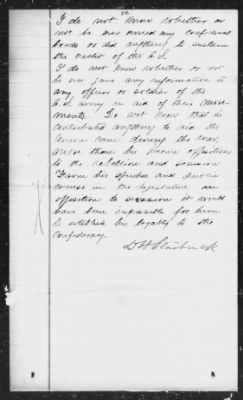 I do not know whether or
not he ever owned any confederate
bonds or did anything to sustain
the credit of the C.S.
I do not know whether or not
he ever gave any information to
any officer or soldier of the
C.S. army in aid of
ments. Do not know that he
contributed anything to aid the
Union cause during the war,
more than his known opposition
to the rebellion and secession
From his speeches and public
course in the legislature in
opposition to secession it would
have been impossible for him
to establish his loyalty to the
Confederacy.